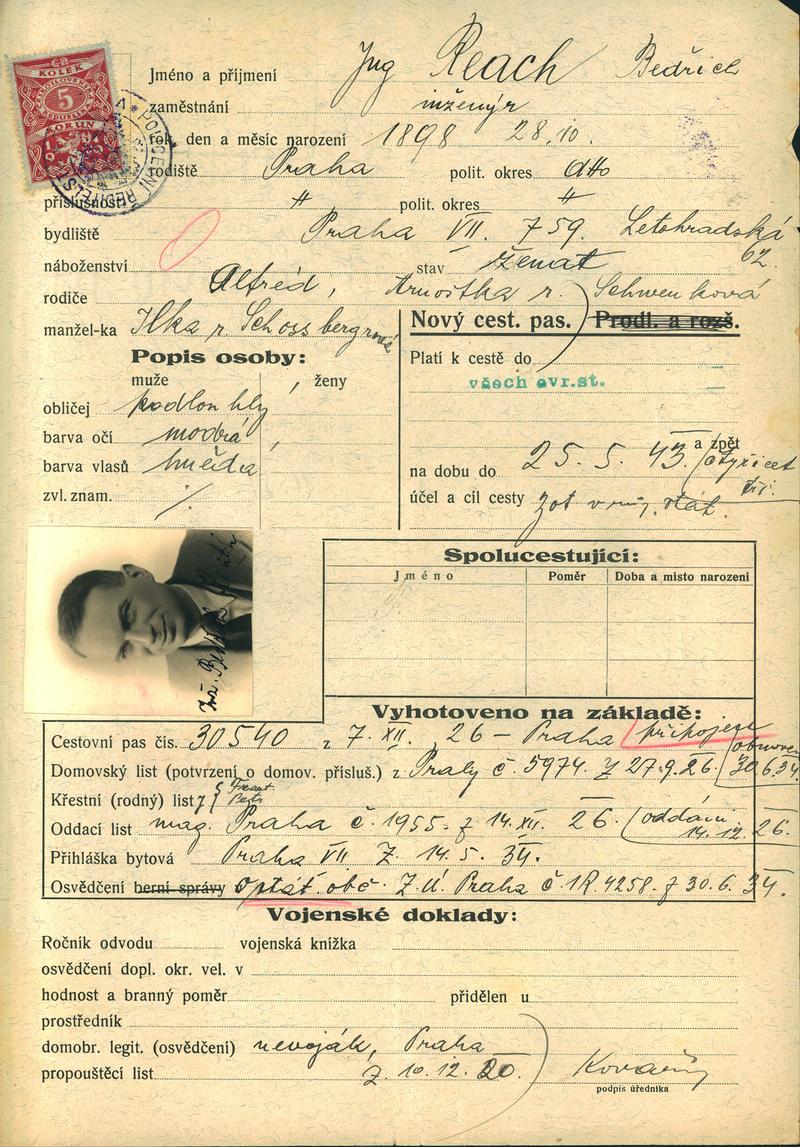 KOLEK
5
KORUN
POLICEJNÍ ŘEDITELST
Jméno a příjmení Ing Reach Bedřich
zaměstnání inženýr
rok, den a měsíc narození 1898 28.10.
rodiště Praha polit. okres dtto
příslušnost " polit. okres "
bydliště Praha VII. 759. Letohradská 62.
náboženství stav ženat
rodiče Alfréd, Arnoštka r. Schwenková
manžel-ka Ilka r. Schossbergrová
Nový cest. pas. Prodl. a rozš.
Popis osoby:
muže ženy
Platí k cestě do
všech evr.st.
obličej podlouhlý
barva očí modrá
barva vlasů hnědá
zvl. znam. ./.
a zpět
na dobu do 25. 5. 43. (čtyřicet tři.
účel a cíl cesty
Spolucestující:
Jméno Poměr Doba a místo narození
Ing. Bedřich
Vyhotoveno na základě:
Cestovní pas čís. 30540 z 7. XII. 26 – Praha připojen
(obnoven 30.6.34.
Domovský list (potvrzení o domov. přísluš.) z Prahy č. 5974. z 27.9.26.
Křestní (rodný) list
Oddací list mag. Praha č. 1955. z 14. XII. 26. (oddáni 14.12.26.
Přihláška bytová Praha VII z. 14.5. 34.
Osvědčení berní správy o stát. obč. Z.Ú. Praha č. 1R.4258. z 30.6. 34.
Vojenské doklady:
Ročník odvodu vojenská knížka
osvědčení dopl. okr. vel. v
hodnost a branný poměr přidělen u
prostředník
domobr. legit. (osvědčení) nevoják, Praha
propouštěcí list z. 10. 12. 20.
Kovařík
podpis úředníka